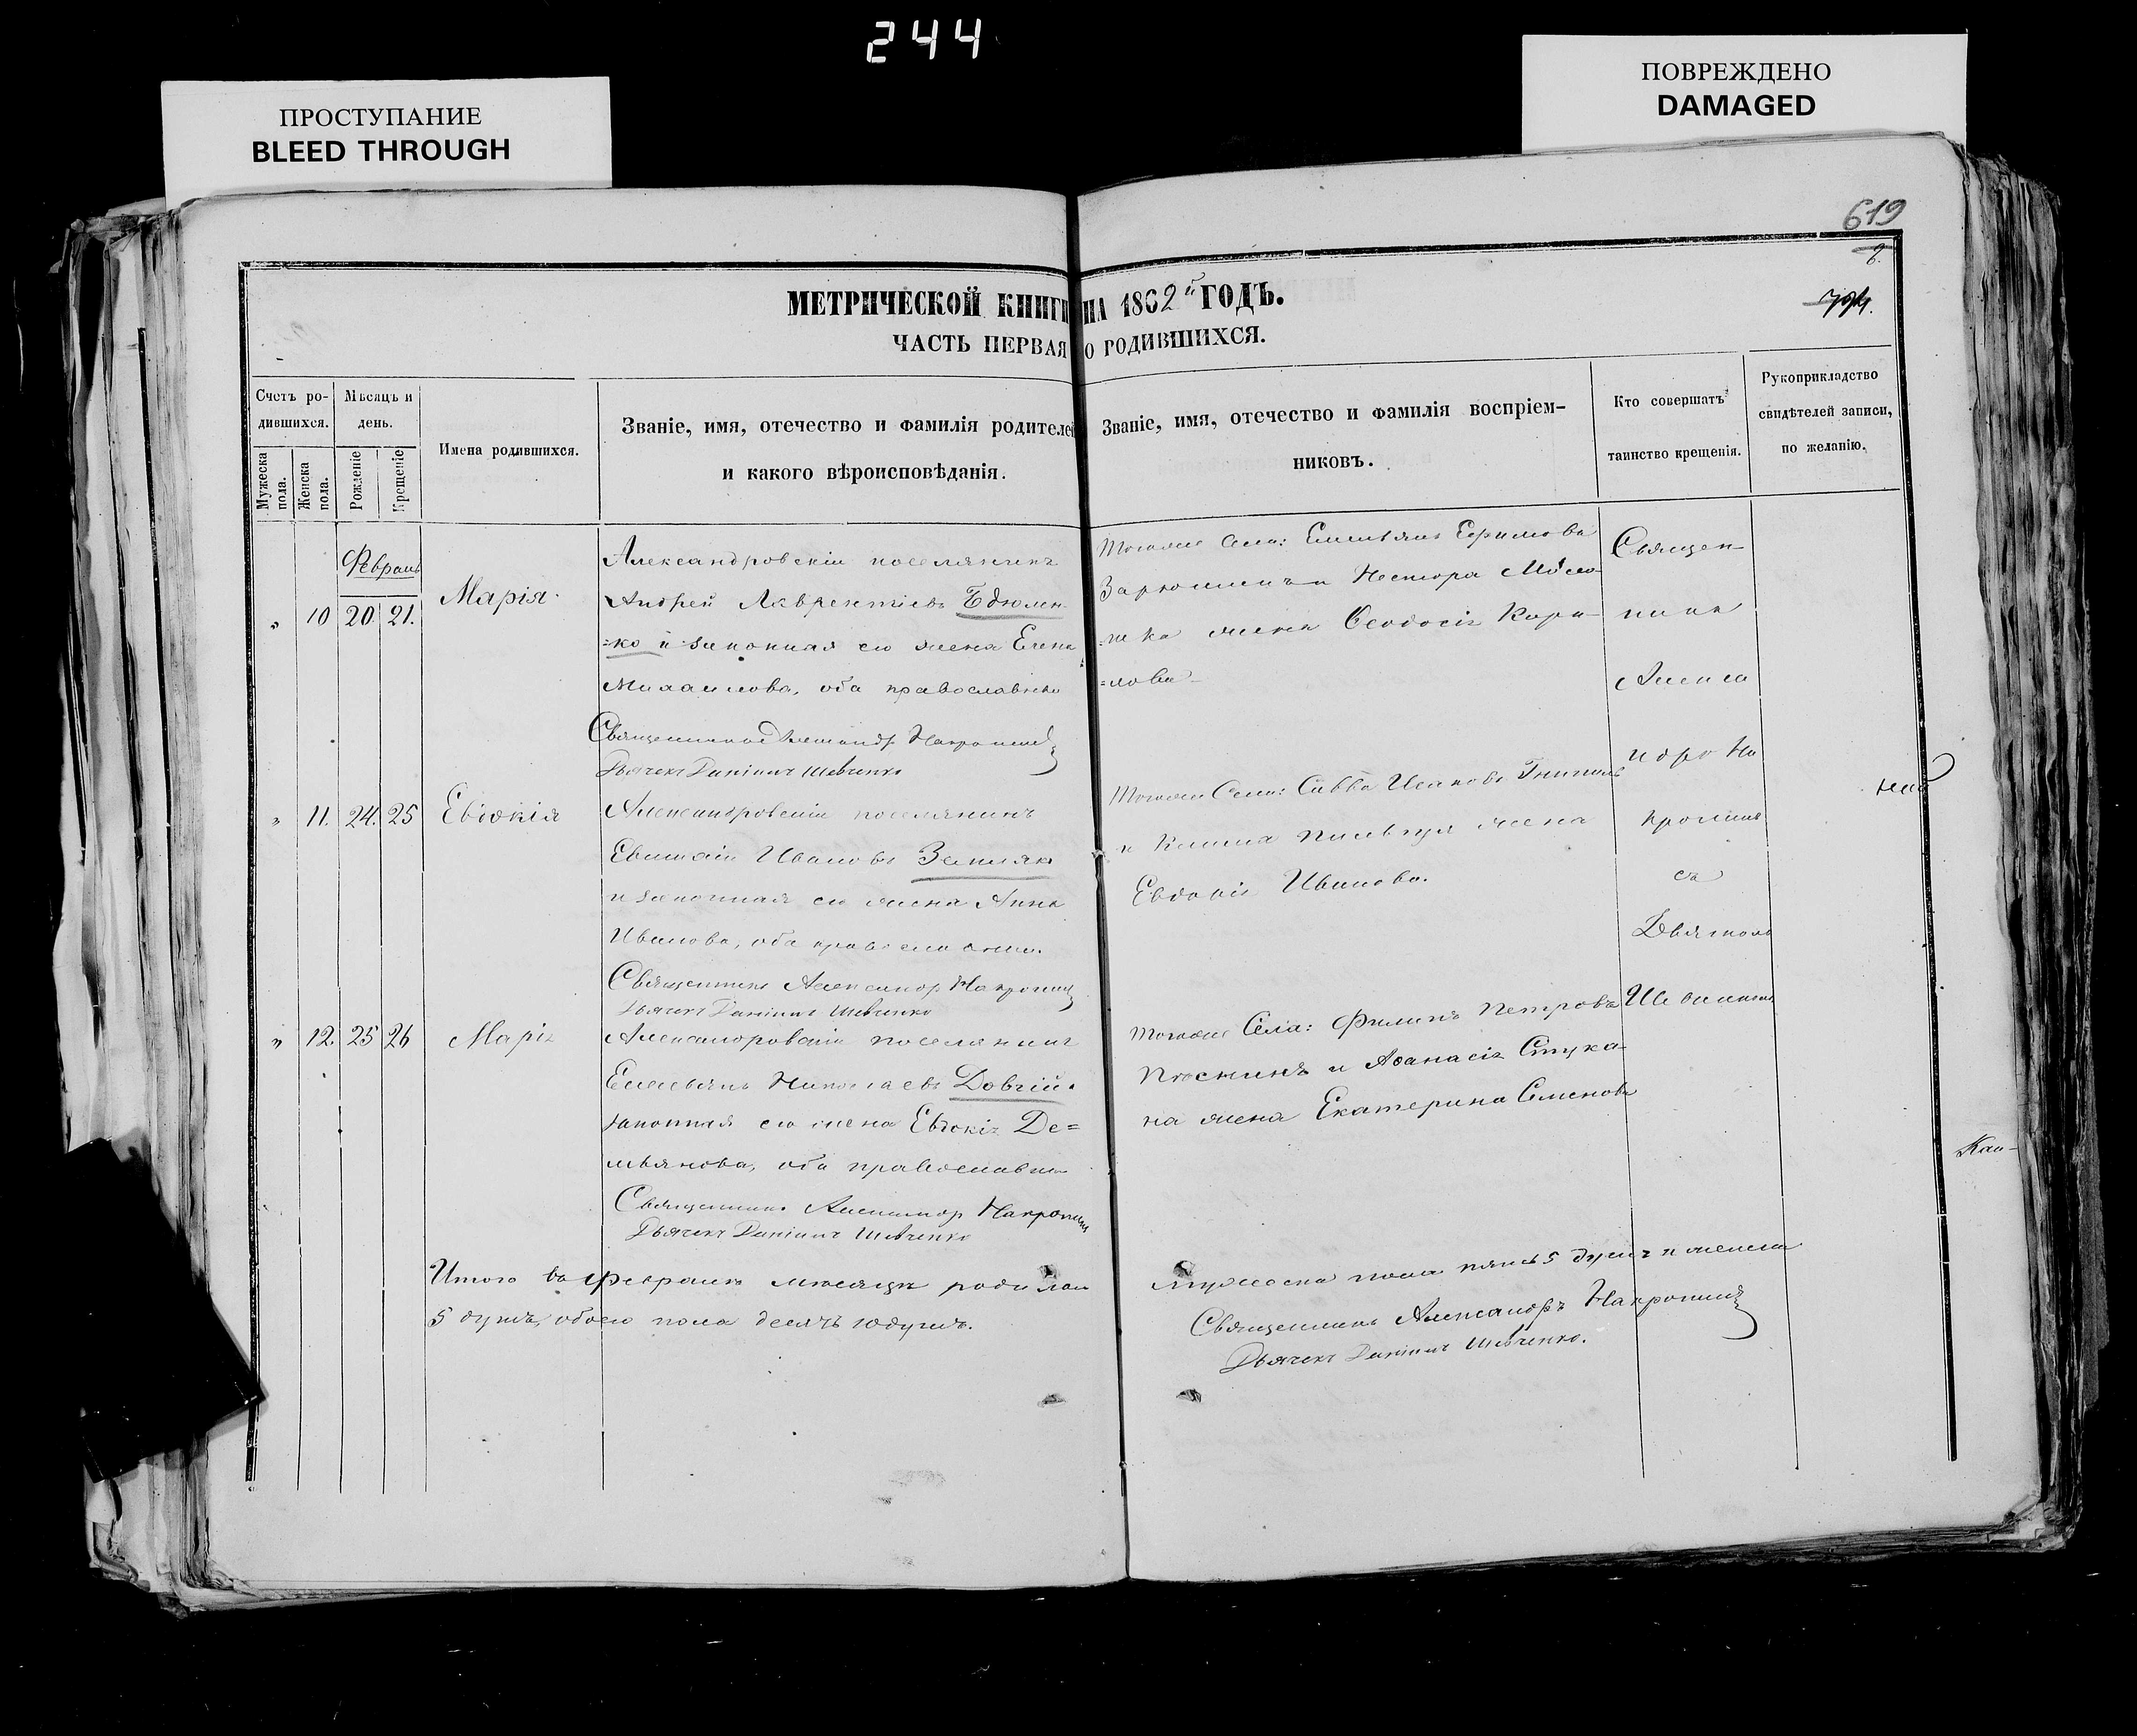 244
ПРОСТУПАНИЕ
BLEED THROUGH
ПОВРЕЖДЕНО
DAMAGED
619
МЕТРИЧЕСКОЙ КНИГИ НА 1862й ГОДЪ.
ЧАСТЬ ПЕРВАЯ О РОДИВШИХСЯ.
Счетъ ро-
дившихся.
Мужеска пола.
Женска пола.
Мѣсяцъ и
день.
Рожденіе
Крещеніе
Имена родившихся.
Званіе, имя, отечество и фамилія родителей
и какого вѣроисповѣданія.
Званіе, имя, отечество и фамилія воспріем-
никовъ.
Кто совершатъ
таинство крещенія.
Рукоприкладство
свидѣтелей записи,
по желанію.
Февраль
" 10 20 21. Марія.
Александровскій поселянинъ
Андрей Лаврентіевъ Бдюлен-
=ко и законная его жена Елена
Михаилова, оба православные
Священникъ Александръ
Дьячекъ Даніилъ Шевченко
Тогоже Села: Емельянъ Ефимовъ
и Нестора
жена Феодосія Кири-
=лова
" 11. 24. 25 Евдокія
Александровскій поселянинъ
Евстафій Ивановъ Землякъ
и законная его жена Анна
Иванова, оба православные.
Священникъ Александръ
Дьячекъ Даніилъ Шевченко
Тогоже Села: Савва Исаковъ
и жена
Евдокія Иванова.
" 12. 25 26 Марія
Александровскій поселянинъ
Емельянъ Николаевъ Довгій.
законная его жена Евдокія Де=
мьянова, оба православные
Священникъ Александръ
Дьячекъ Даніилъ Шевченко
Тогоже Села: Филипъ Петровъ
и Афанасія Стука-
на жена Екатерина Семенова
Священ-
никъ
Алекса
ндръ На
съ
Шевченко
Итого въ Февралѣ мѣсяцѣ родилось
мужеска пола пять 5 душъ и женска
5 душъ, обоего пола десять 10 душъ.
Священникъ Александръ
Дьячекъ Даніилъ Шевченко.